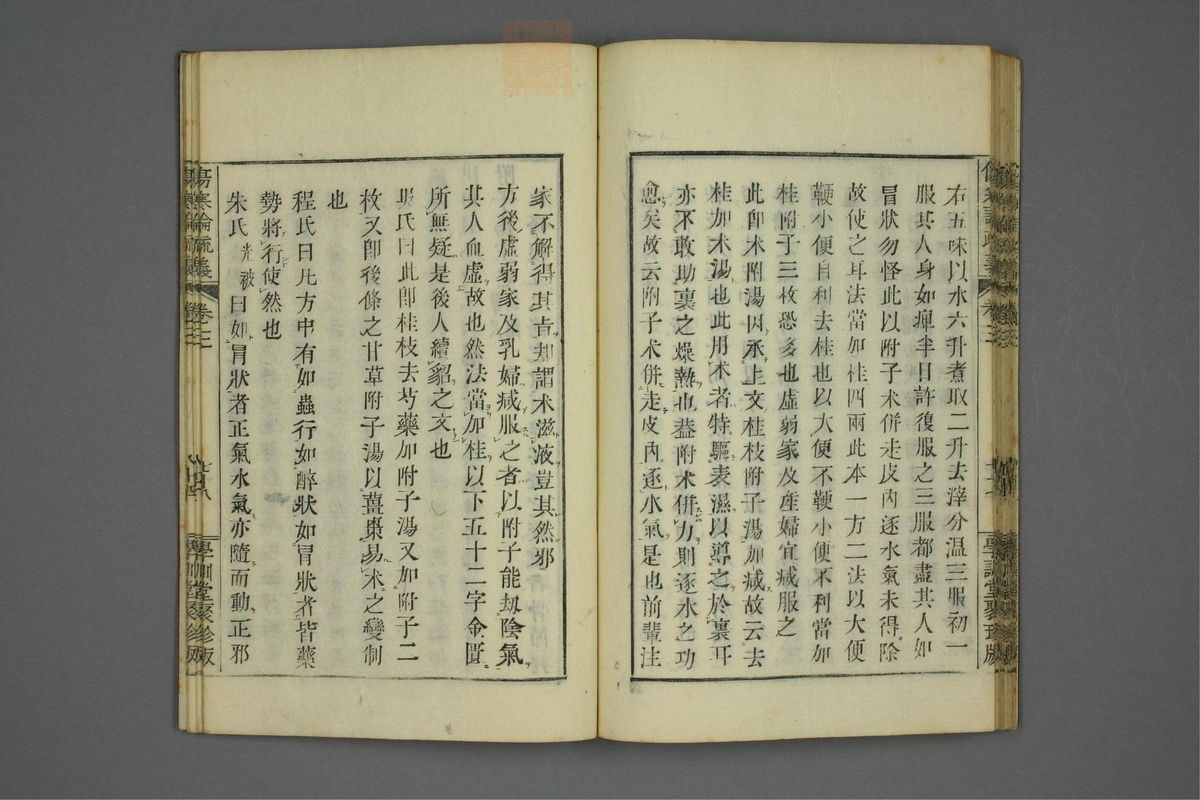 右五味以水六升煮取二升去滓分温三服初一
服其人身如痺半日許復服之三服都盡其人如
冒狀勿怪此以附子朮併走皮內逐水氣未得除
故使之耳法當加桂四兩此本一方二法以大便
鞕小便自利去桂也以大便不鞕小便不利當加
桂附子三枚恐多也虛弱家及產婦宜減服之
此卽朮附湯因承上文桂枝附子湯加減故云去
桂加朮湯也此用朮者特驅表濕以導之於裏耳
亦不敢助裏之燥熱也蓋附朮併力則逐水之功
愈矣故云附子朮併走皮內逐水氣是也前輩注
家不解得其旨却謂朮滋液豈其然邪
方後虛弱家及乳婦減服之者以附子能劫陰氣
其人血虛故也然法當加桂以下五十二字金匱
所無疑是後人續貂之文也
吳氏曰此卽桂枝去芍藥加附子湯又加附子二
枚又卽後條之甘草附子湯以薑棗易朮之變制
也
程氏曰凡方中有如蟲行如醉狀如冒狀者皆藥
勢將行使然也
朱氏光被曰如冒狀者正氣水氣亦隨而動正邪
傷寒論疏義 卷三
學訓堂聚珍版